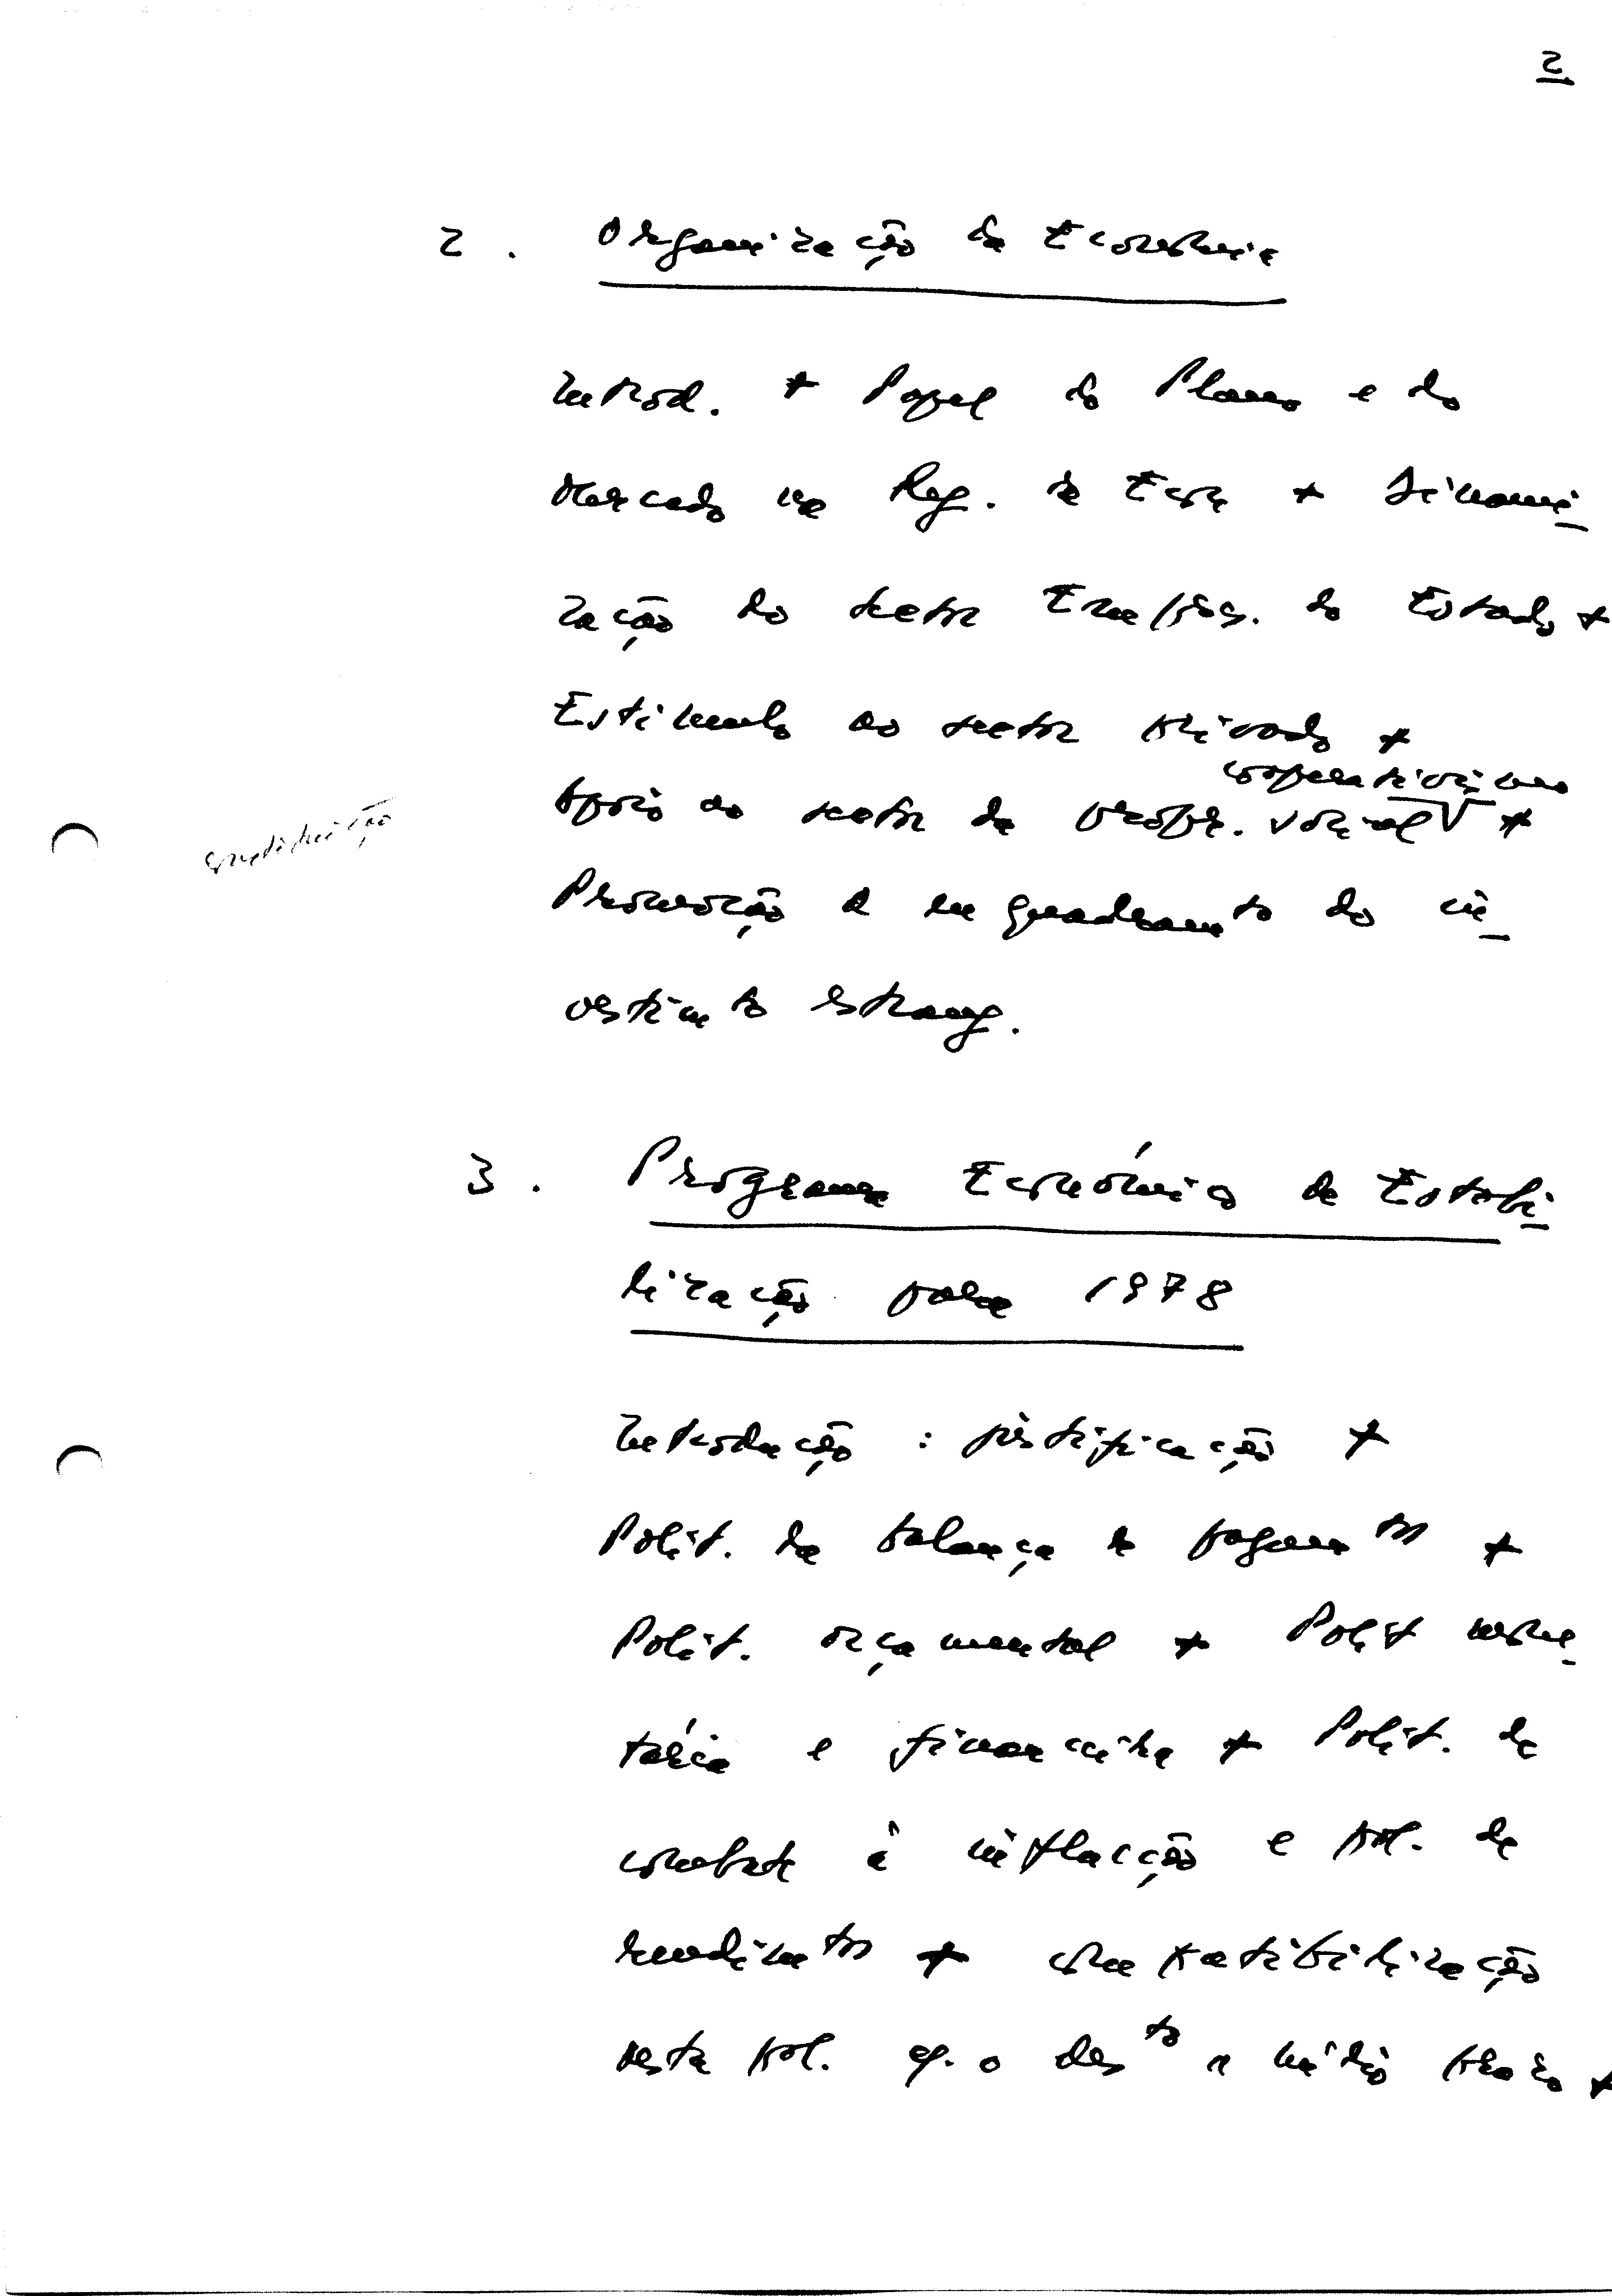 2.
2. Organização da Economia
Introd. + Papel do Plano e do
Mercado na Reg. da Econ + Dinami
zação do sector Empres. do Estado +
Estimulo ao sector privado +
cooperativismo
Apoio ao sector da propr. social +
Promoção e enquadramto do in
vestimto estrang.
3. Programa Económico de Estabi
lização para 1978
Introdução : justificação +
Polit. da balança de pagamtos +
Polit. orçamental + Polit mone
tária e financeira + Polit. de
combate à inflacção e pol. de
rendimtos + compatibilização
desta pol. c/. o desto a médio prazo +